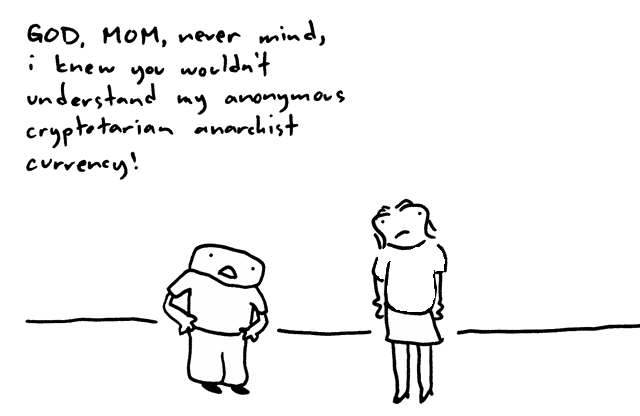 GOD, MOM, never mind,
i knew you wouldn't
understand my anonymous
cryptotarian anarchist
currency!